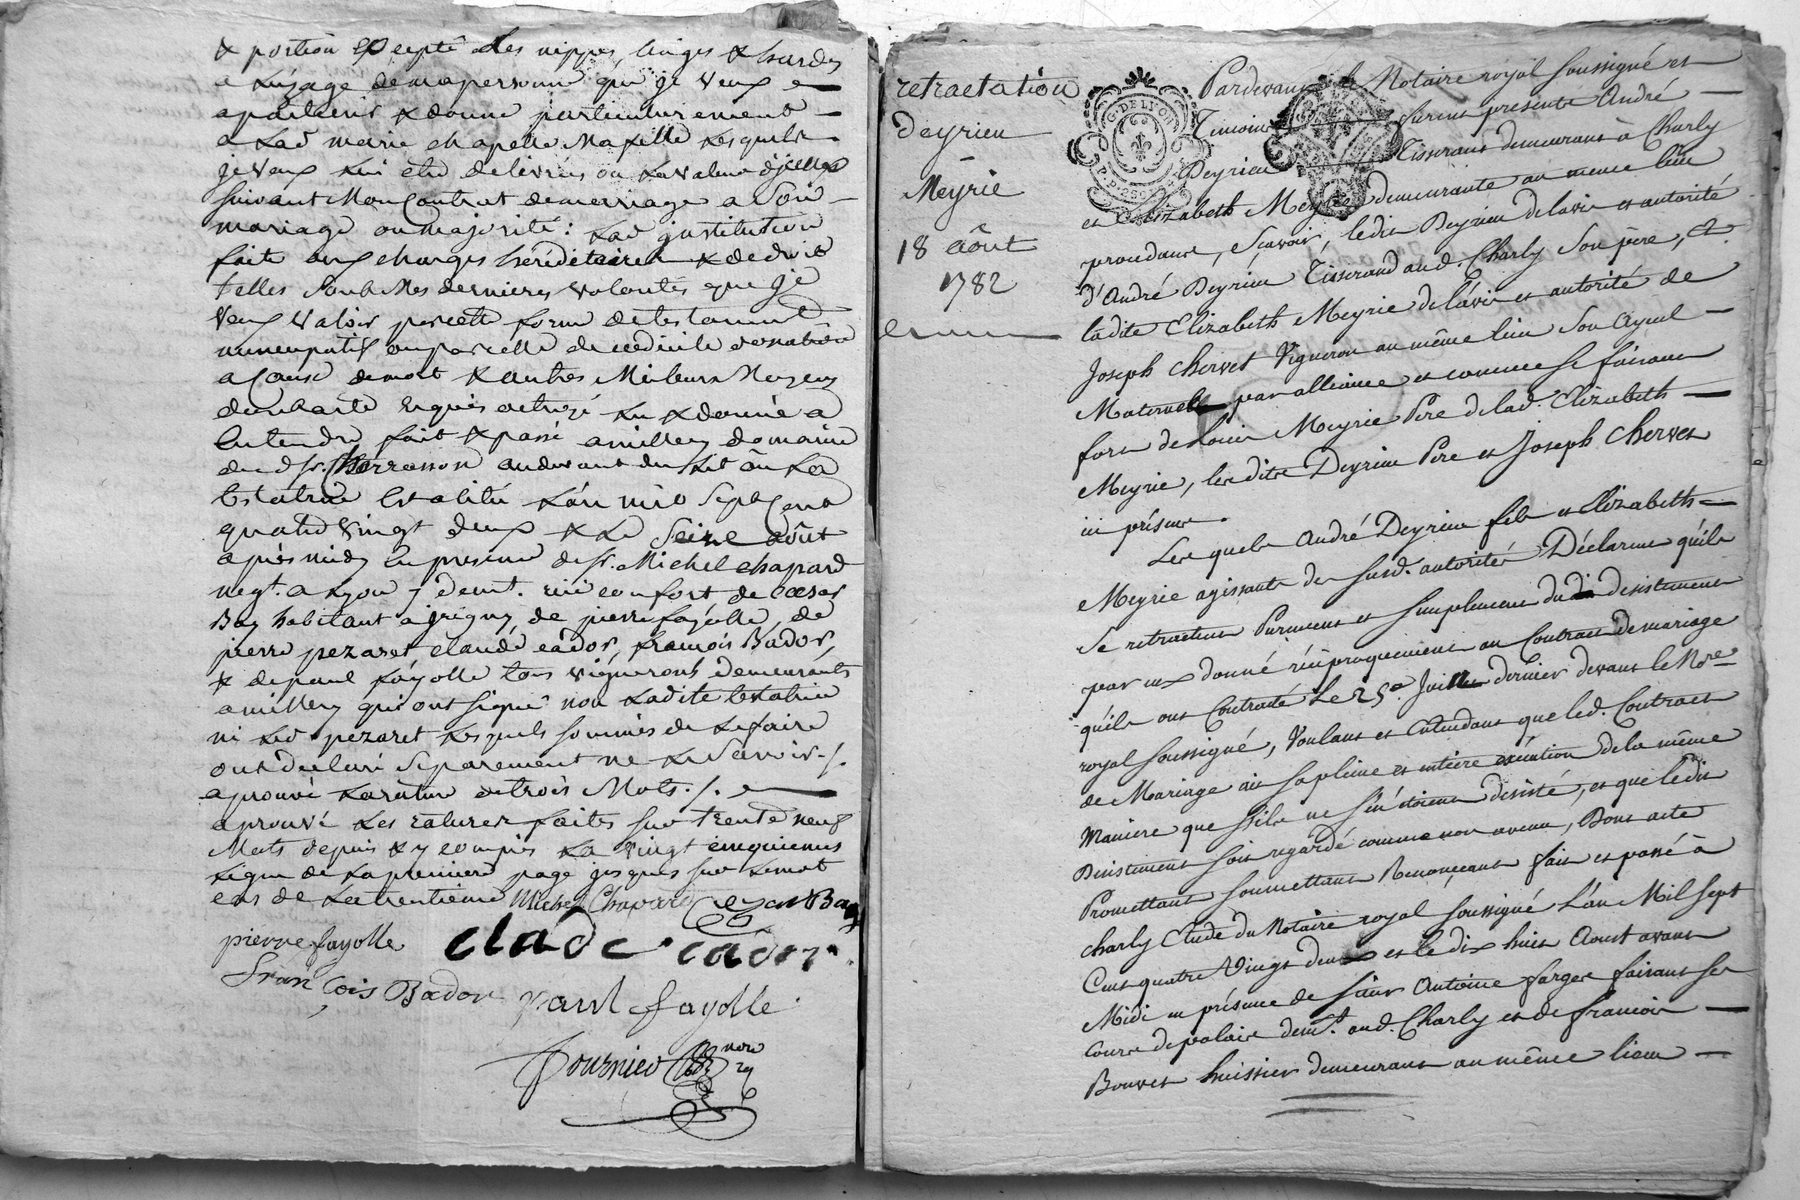 & portion excepté les nippes, linges & hardes
a lusage demapersonne que je veux
apartenir & donne particulierement
a lad marie chapelle Ma fille lesquels
je veux lui etre delivrés ou la valeur d'jcelles
suivant Mon Contrat demarriage a son
mariage ou majorité : lad justitution
faite aux charges héréditaires & de droit
telles sont Mes dernieres volontés que je
veux valoir par cette forme de testament
nuncupatif ou par celle de codicile donation
a Cause de mort & autres Meilleurs Moyens
dont acte requis octroyé lu & donné a
Entendre fait & passé amillery domaine
du dt sr. au devant du lit où la
testatrice est alitée lan mil Sept Cent
quatre vingt deux & le Seize août
après midy En presence de sr. Michel chapard
negt. a Lyon y demt. rüe confort de Cesar
Bay habitant a jrigny, de pierre fayolle, de
pierre pezaret claude cador, francois Bador
& de paul fayolle tous vignerons demeurants
amillery qui ont signé non ladite testatrice
ni led pezaret lesquels sommés de le faire
ont declaré separement ne le Savoir ./.
aprouvé la rature de trois Mots ./.
aprouvé les ratures faites sur trente neuf
Mots depuis & y compris la vingt cinquieme
ligne de la premiere page jusques sur le mot
de la trentieme Michel Chapard Cezard Bay
pierre fayolle clade cador
François Bador paul fayolle
fournier nore
retractation
deyrieu
Meyrie
18 août
1782
G. DE LYON
Pardevant le Notaire royal soussigné et
Temoins furent presents André
Deyrieu Tisserant demeurant à Charly
et Elizabeth Meyrie demeurante au meme lieu
procédant, Sçavoir, ledit Deyrieu de lavis et autorité
d'André Deyrieu Tisserand aud. Charly Son père, et
ladite Elizabeth Meyrie de lavis et autorité de
Joseph Chervet Vigneron au même lieu Son Ayeul
Maternel par alliance et comme se faisant
fort de Meyrie Pere de lad. Elizabeth
Meyrie, lesdits Deyrieu Pere et Joseph Chervet
ici présens.
Lesquels André Deyrieu fils et Elizabeth
Meyrie agissants des susd. autorités Déclarent qu'ils
se retractent Purement et simplement du désistement
par eux donné réciproquement au Contract de mariage
qu'ils ont Contracté Le 25e. Juillet dernier devant le Nore
royal soussigné, Voulant et Entendant que led. Contract
de Mariage ait sa pleine et entiere exécution de la même
maniere que s'ils ne s'en étoient désisté, et que ledit
Désistement soit regardé comme non avenu, Dont acte
Promettant Soumettant Renonçeant fait et passé à
Charly Etude du Notaire royal soussigné L'an Mil sept
Cent quatre Vingt deux et le dix huit Aoust avant
Midi en présence de sieur Antoine farges faisant ses
cours de palais demt. aud. Charly et de francois
Bouvet huissier demeurant au même lieu